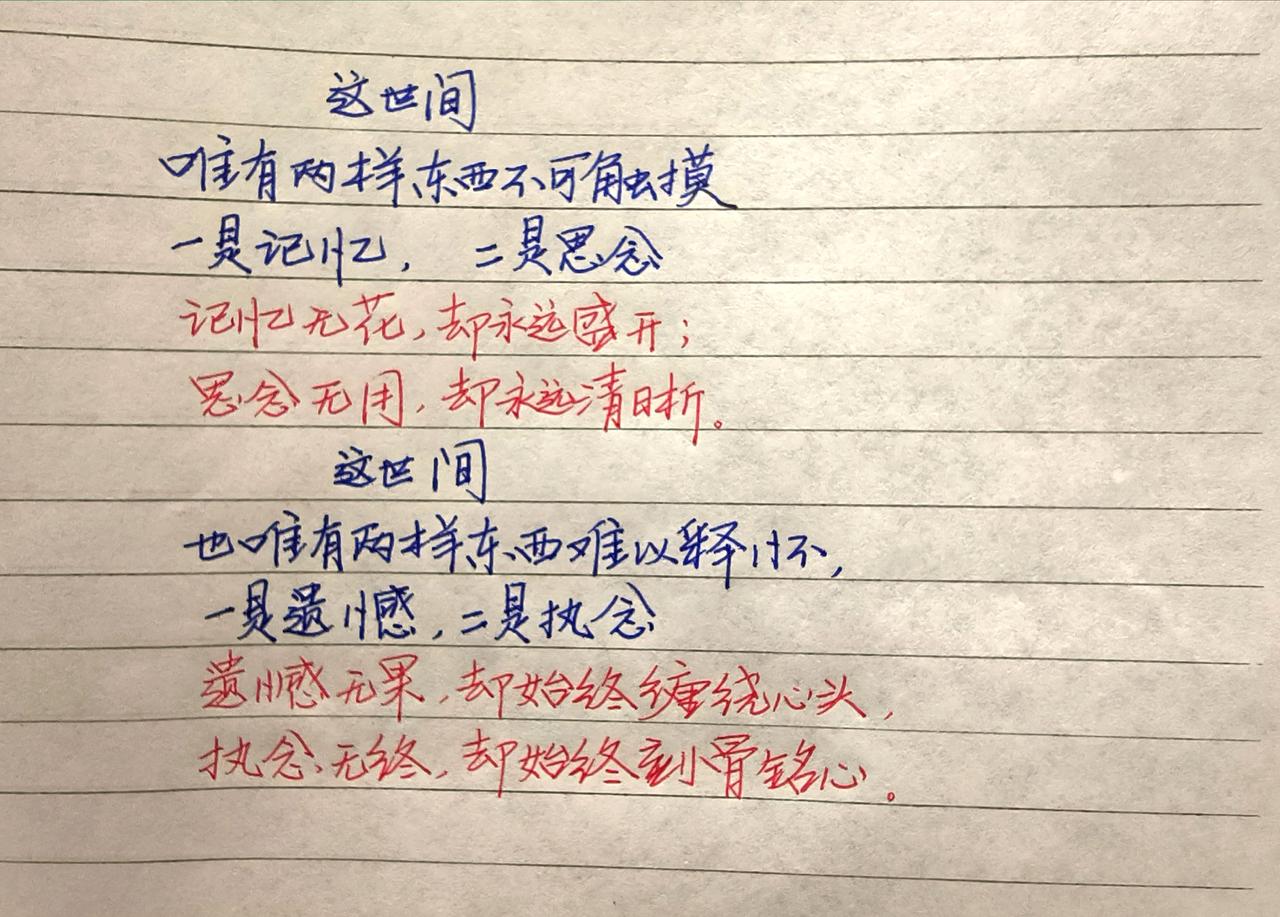 这世间
唯有两样东西不可触摸
一是记忆， 二是思念
记忆无花，却永远盛开；
思念无用，却永远清晰。
这世间
也唯有两样东西难以释怀，
一是遗憾，二是执念
遗憾无果，却始终缠绕心头，
执念无终，却始终刻骨铭心。